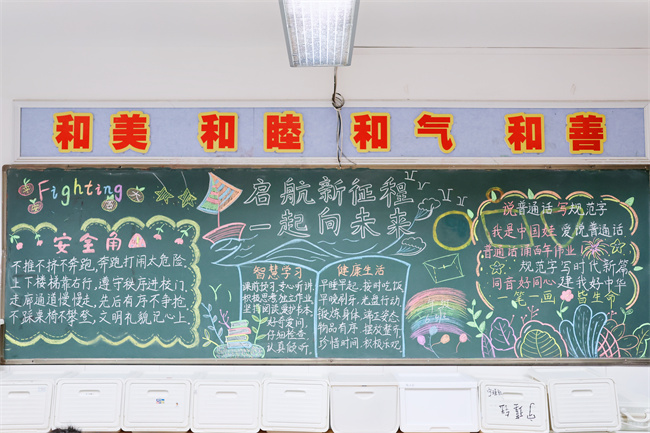 和美 和睦 和气 和善
Fighting
启航新征程
一起向未来
安全角
不推不挤不奔跑,奔跑打闹太危险,
上下楼梯靠右行,遵守秩序进校门,
走廊通道慢慢走,先后有序不争抢,
不踩桌椅不攀登,文明礼貌记心上
智慧学习
课前预习,专心听讲
积极思考,独立作业
好学爱问,
仔细检查
认真做听,
健康生活
早睡早起,按时吃饭
早晚刷牙,光盘行动
锻炼身体,端正姿态
物品有序,摆放整齐
珍惜时间,积极乐观
说普通话 写规范字
我是中国娃 爱说普通话
普通话诵百年伟业
规范字写时代新篇
同音好同心 建我好中华
一笔一画皆生命